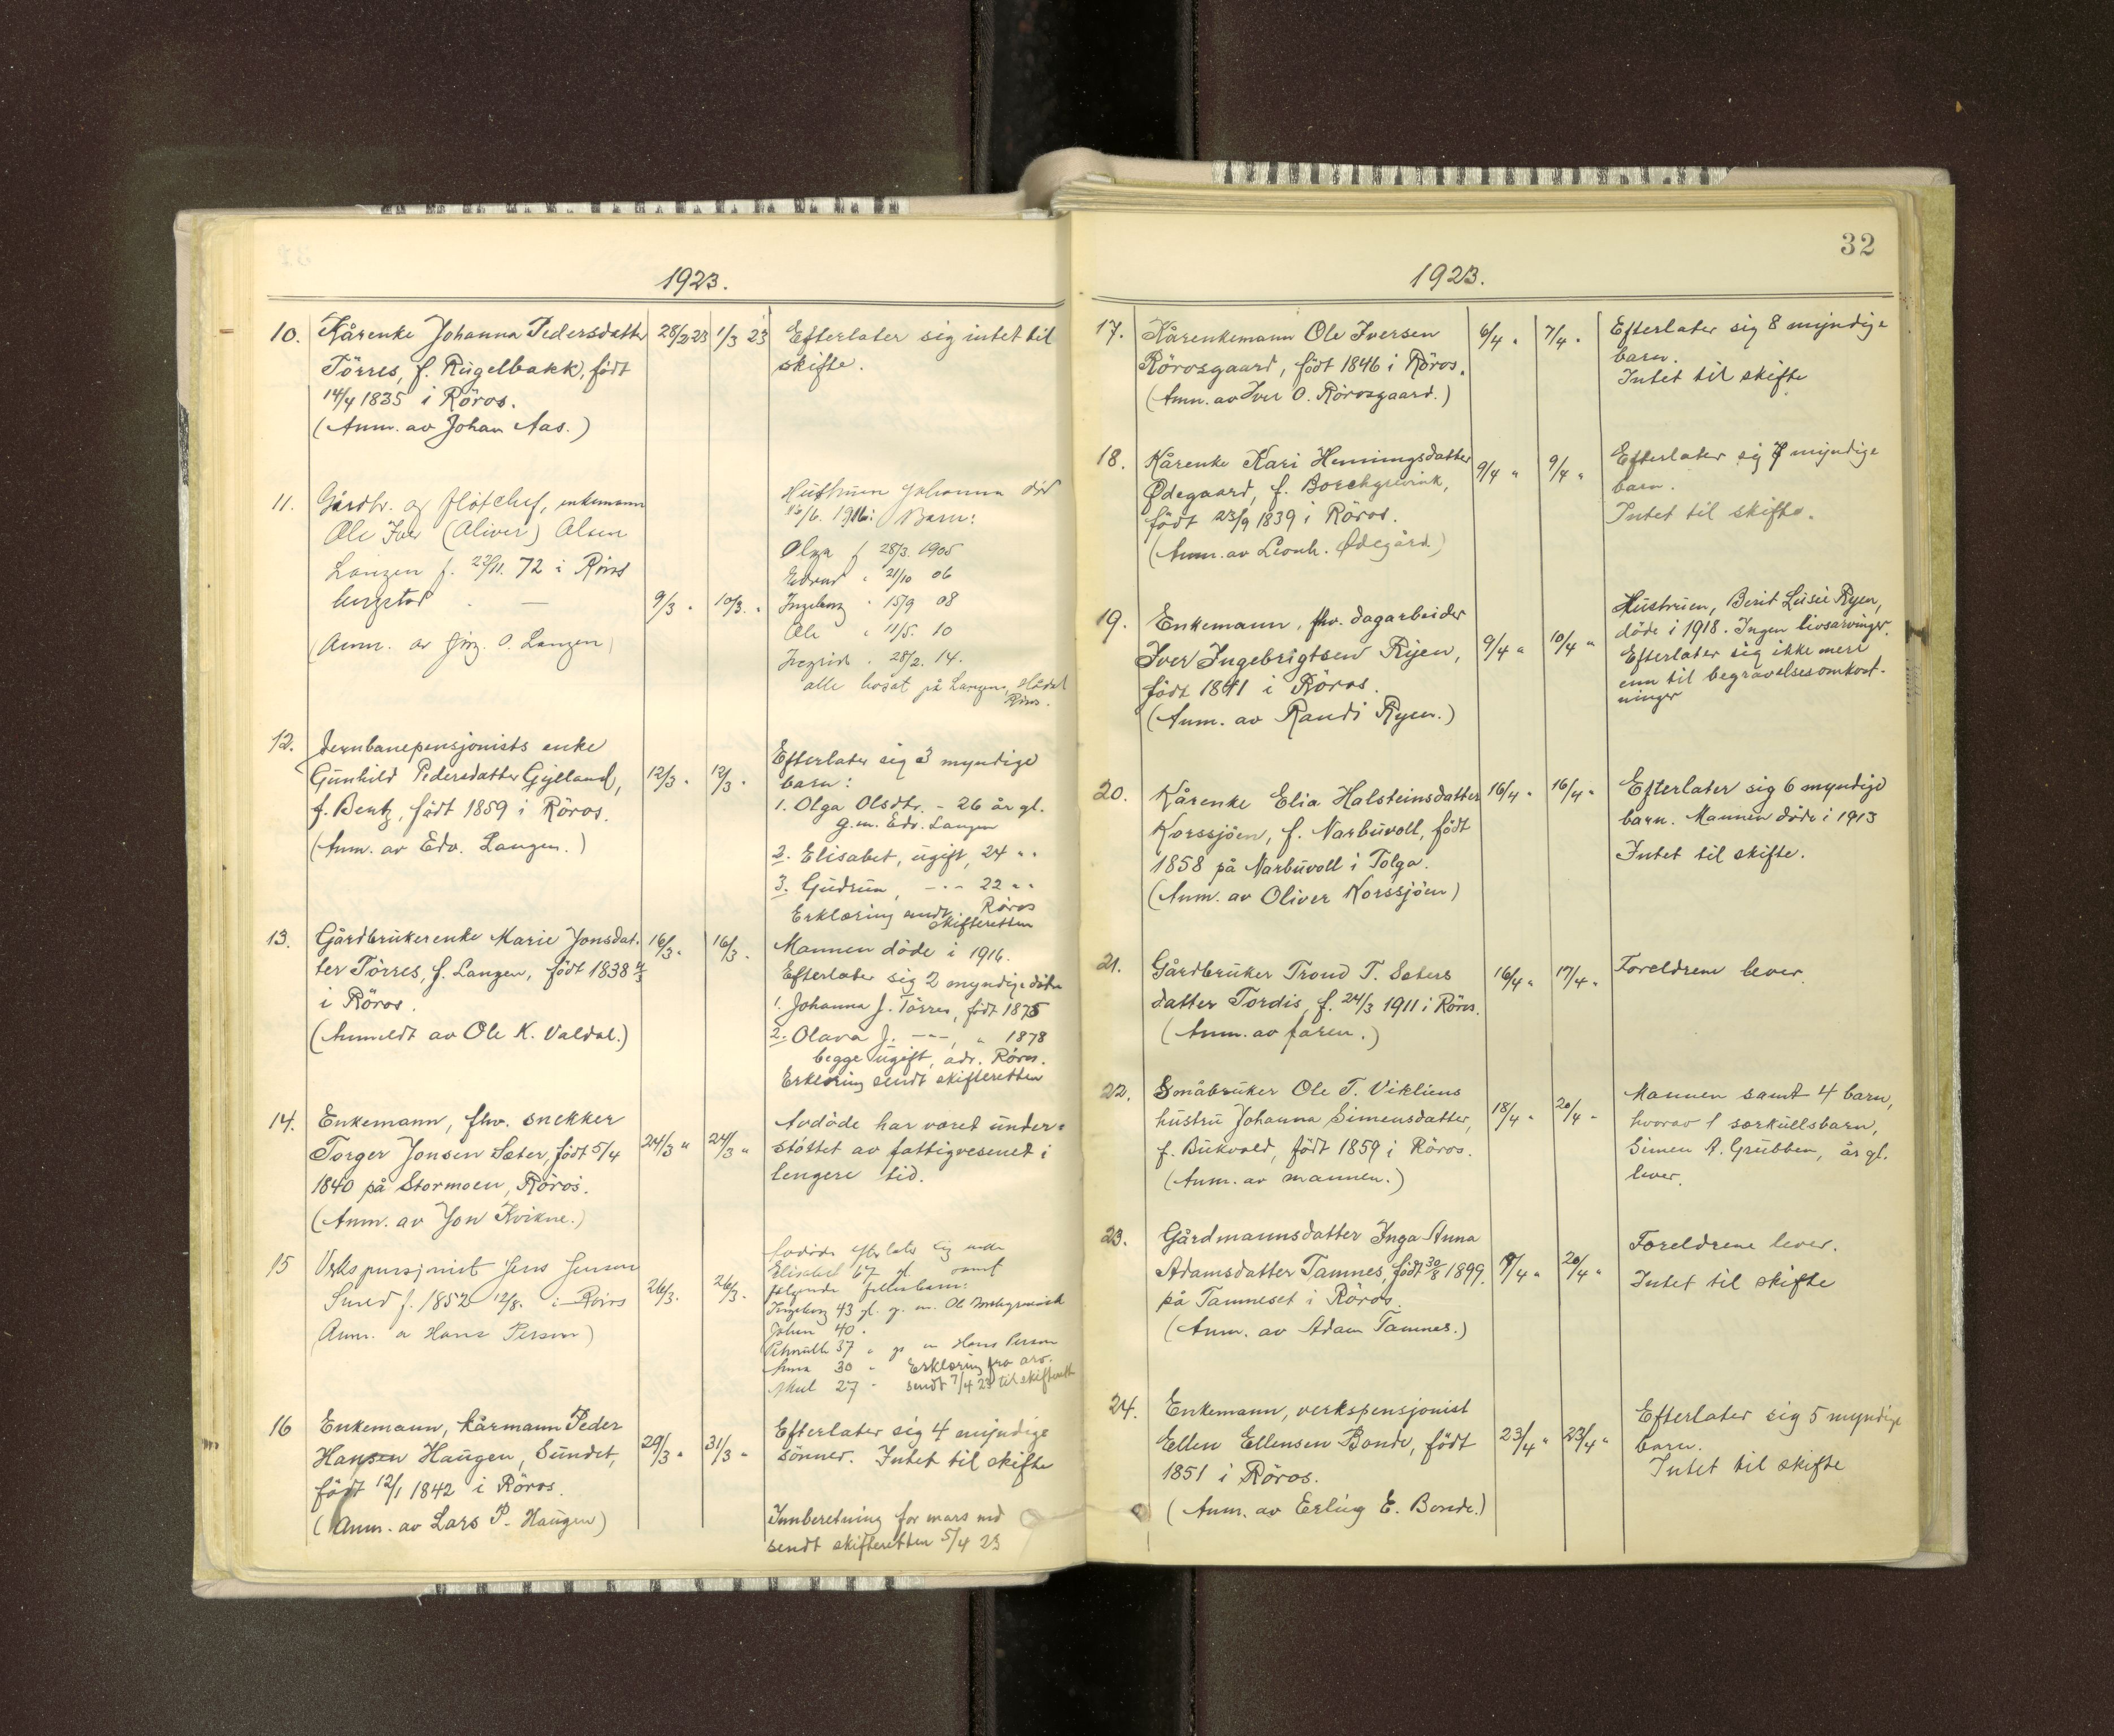 1923.
10. Kårenke Johanna Pedersdatter 28/2 23 1/3 23 Efterlater sig intet til
Törres, f. Rugelbakk, födt skifte.
14/4 1835 i Röros.
(Anm. av Johan Aas.)
11. Gårdbr. og fløtchef, enkemann Hustruen Johanna död
Ole Iver (Oliver) Olsen 16/6. 1916: Barn:
Langen f. 29/11. 72 i Röros Olga f 28/3. 1905
bergstad 9/3 " 10/3. " Edvard " 21/10 06
Ingeborg " 15/9 08
(Anm. av Jörg. O. Langen) Ole " 11/5. 10
Ingrid " 28/2. 14.
alle bosat på Langen, Hådal
Röros.
12. Jernbanepensjonists enke Efterlater sig 3 myndige
Gunhild Pedersdatter Gylland, 12/3 " 12/3 " barn:
f. Bentz, födt 1859 i Röros. 1. Olga Olsdtr. - 26 år gl.
(Anm. av Edv. Langen.) g.m. Edv. Langen
2. Elisabet, ugift, 24 " "
3. Gudrun, -"- 22 " "
Erklæring sendt Röros
skifteretten
13. Gårdbrukerenke Marie Jonsdat- 16/3 " 16/3 " Mannen döde i 1916.
ter Törres, f. Langen, födt 1838 4/3 Efterlater sig 2 myndige dötre
i Röros. 1. Johanna J. Törres, födt 1875
(Anmeldt av Ole K. Valdal.) 2. Olava J. -"-, " 1878
begge ugift, adr. Röros.
Erklæring sendt skifteretten
14. Enkemann, fhv. snekker Avdöde har været under-
Torger Jonsen Sæter, födt 5/4 24/3 " 24/3 " stöttet av fattigvesenet i
1840 på Stormoen, Röros. lengere tid.
(Anm. av Jon Kvikne.)
15 Verkspensjonist Jens Jensen Avdöde efterlater sig enke
Smed f. 1852 12/8. i Röros 26/3. 26/3. Elisabet 67 gl. samt
(Anm. a Hans Person) følgende fellesbarn:
Ingeborg 43 gl. g. m. Ol Borchgrevink
Johan 40 "
Petrnille 37 " g. m Hans Person
Anna 30 " Erklæring fra arv.
Aksel 27 " sendt 7/4 23 til skifterett
16 Enkemann, kårmann Peder Efterlater sig 4 myndige
Hansen Haugen, Sundet, 29/3 " 31/3 " sönner. Intet til skifte
födt 12/1 1842 i Röros.
(Anm. av Lars P. Haugen) Innberetning for mars md
sendt skifteretten 5/4 23
32
1923.
17. Kårenkemann Ole Iversen 6/4 " 7/4 " Efterlater sig 8 myndige
Rörosgaard, födt 1846 i Röros. barn.
(Anm. av Iver O. Rörosgaard.) Intet til skifte
18. Kårenke Kari Henningsdatter 9/4 " 9/4 " Efterlater sig 7 myndige
Ødegaard, f. Borchgrevink, barn.
födt 23/9 1839 i Röros. Intet til skifte.
(Anm. av Leonh. Ødegård)
19. Enkemann, fhv. dagarbeider Hustruen, Berit Lusie Ryen,
Iver Ingebrigtsen Ryen, 9/4 " 10/4 " döde i 1918. Ingen livsarvinger.
födt 1841 i Röros. Efterlater sig ikke mere
(Anm. av Randi Ryen.) enn til begravelsesomkost-
ninger
20. Kårenke Elia Halsteinsdatter 16/4 " 16/4 " Efterlater sig 6 myndige
Korssjöen, f. Narbuvoll, födt barn. Mannen döde i 1913
1858 på Narbuvoll i Tolga. Intet til skifte.
(Anm. av Oliver Korssjöen)
21. Gårdbruker Trond T. Sæters 16/4 " 17/4 " Foreldrene lever.
datter Tordis, f. 24/3 1911 i Röros.
(Anm. av faren.)
22. Småbruker Ole T. Vikliens Mannen samt 4 barn,
hustru Johanna Simensdatter, 18/4 " 20/4 " hvorav 1 særkullsbarn,
f. Bukvold, födt 1859 i Röros. Simen A. Grubben, år gl.
(Anm. av mannen.) lever.
23. Gårdmannsdatter Inga Anna Foreldrene lever.
Adamsdatter Tamnes, födt 30/8 1899. 19/4 " 20/4 " Intet til skifte
på Tamneset i Röros.
(Anm. av Adam Tamnes.)
24. Enkemann, verkspensjonist Efterlater sig 5 myndige
Ellen Ellensen Bonde, födt 23/4 " 23/4 " barn.
1851 i Röros. Intet til skifte
(Anm. av Erling E. Bonde.)